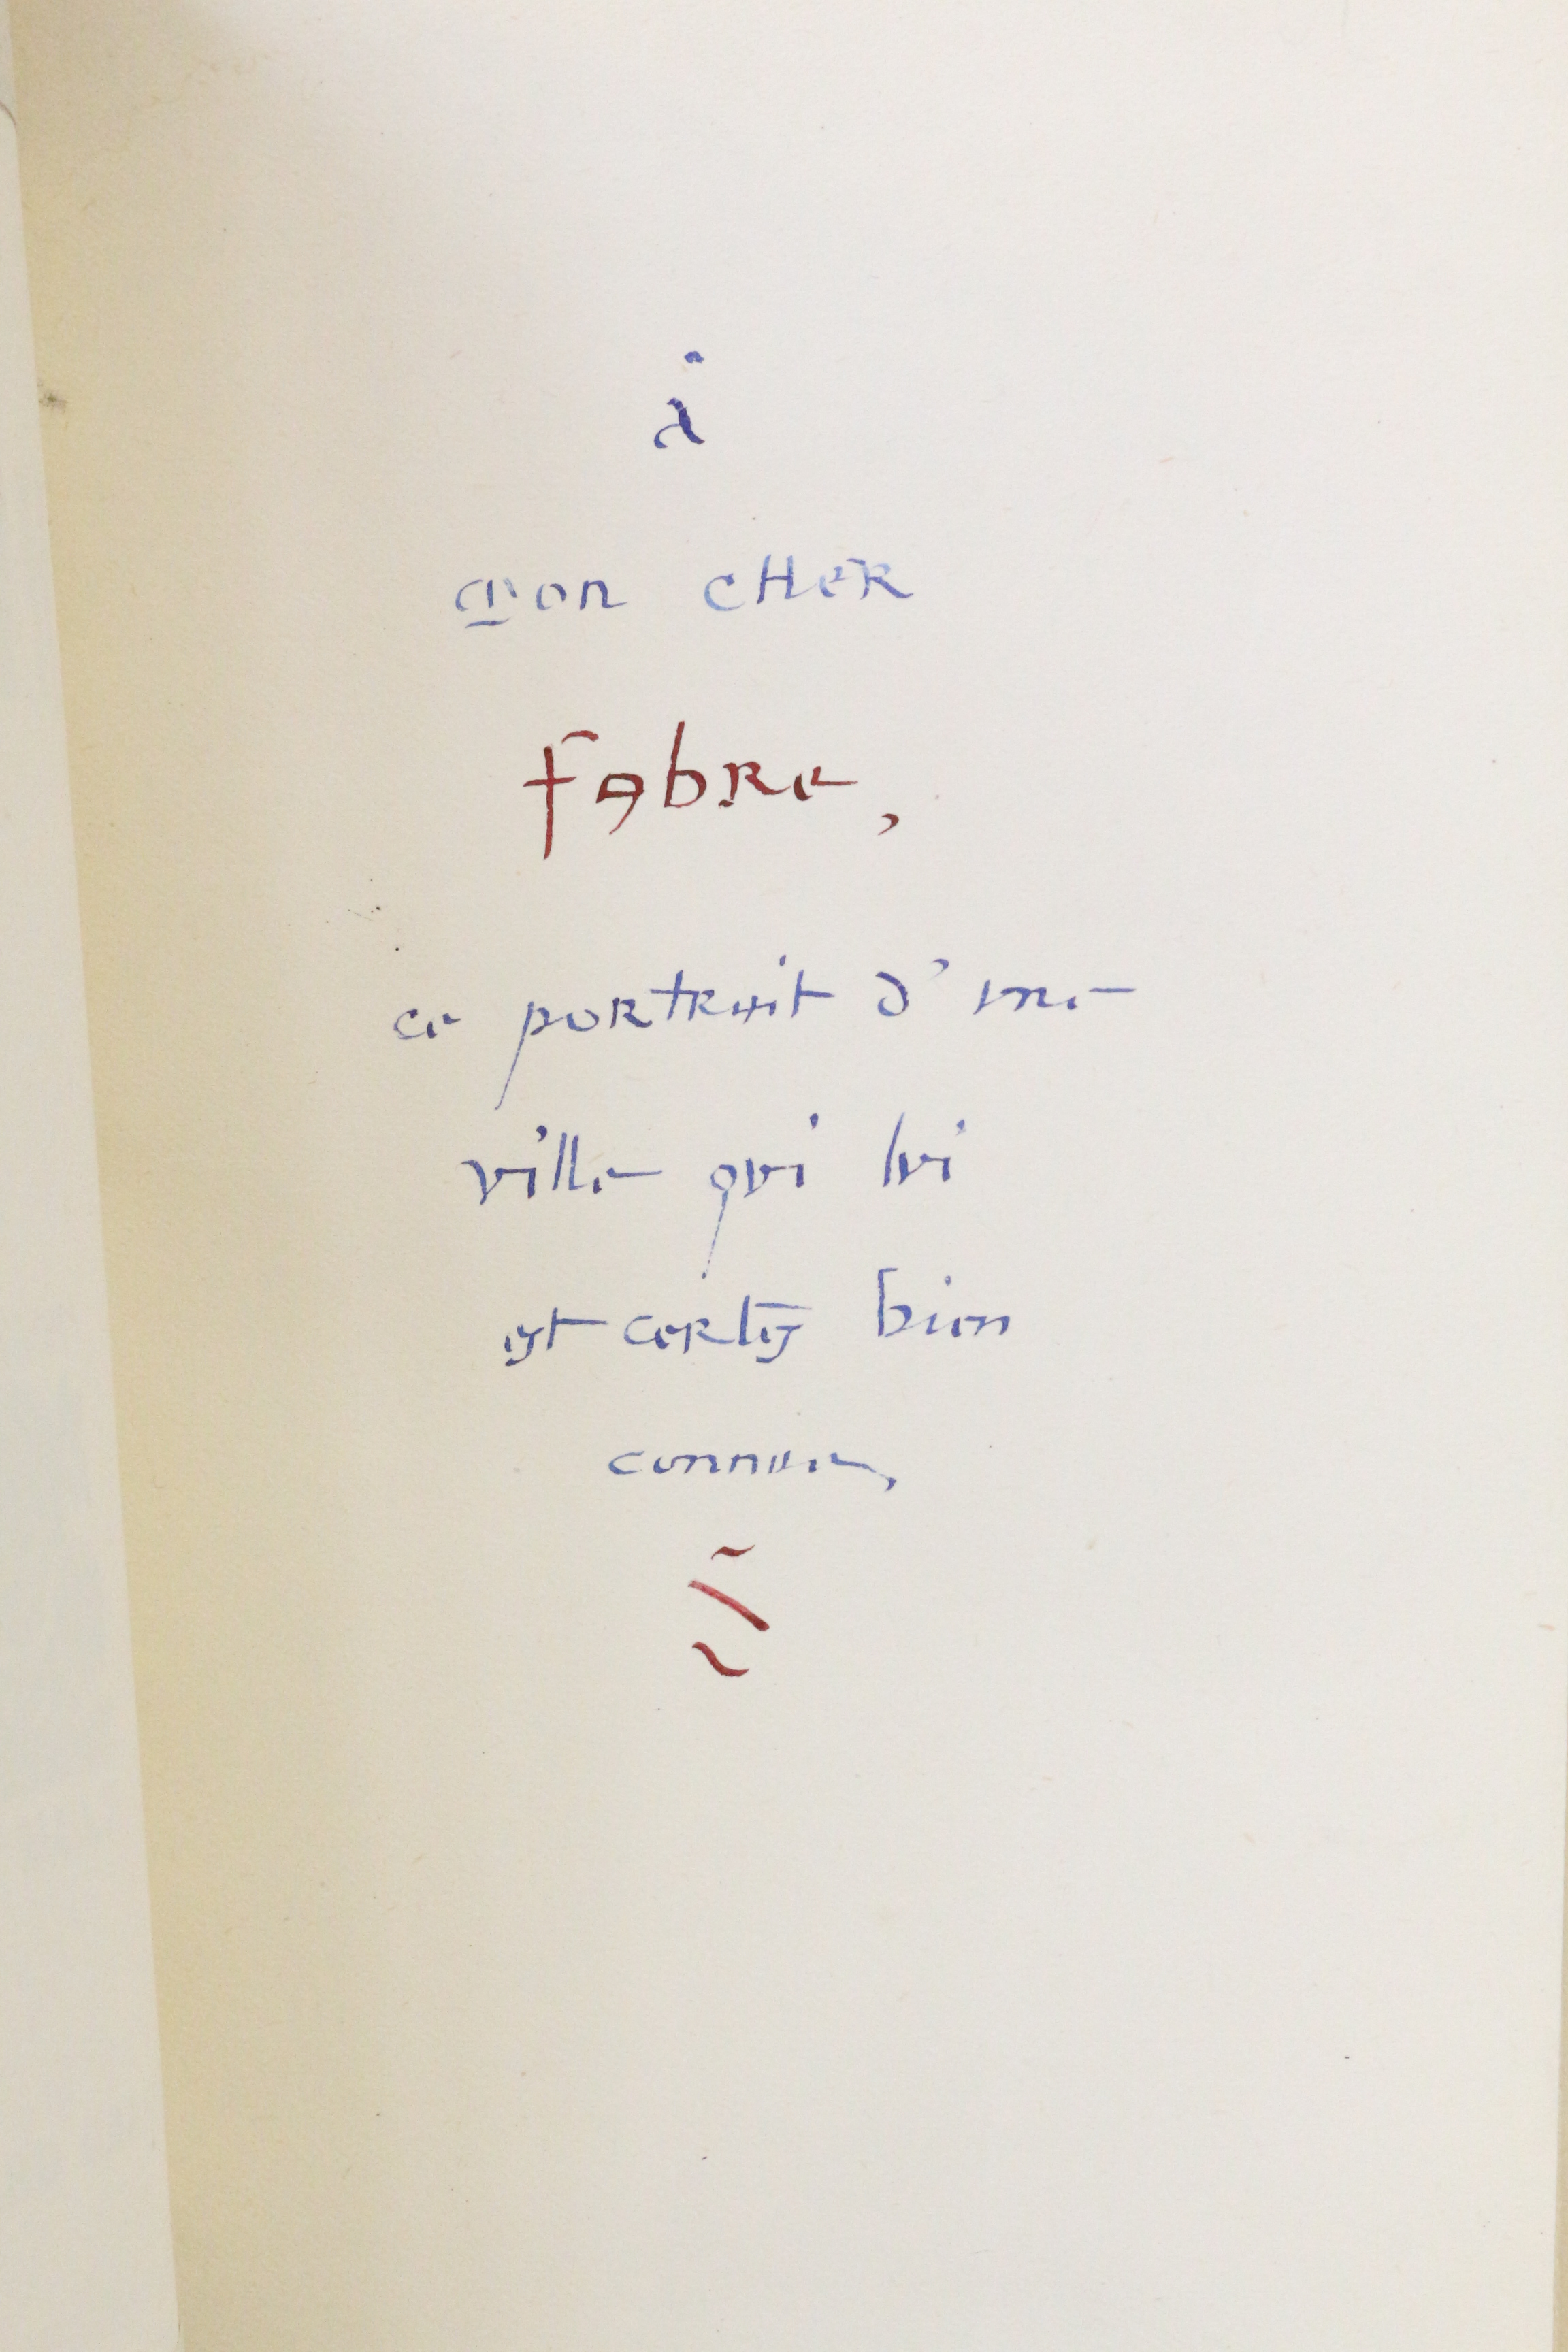 à
mon cher
fabre,
ce portrait d'une
ville qui lui
est certes bien
connue,